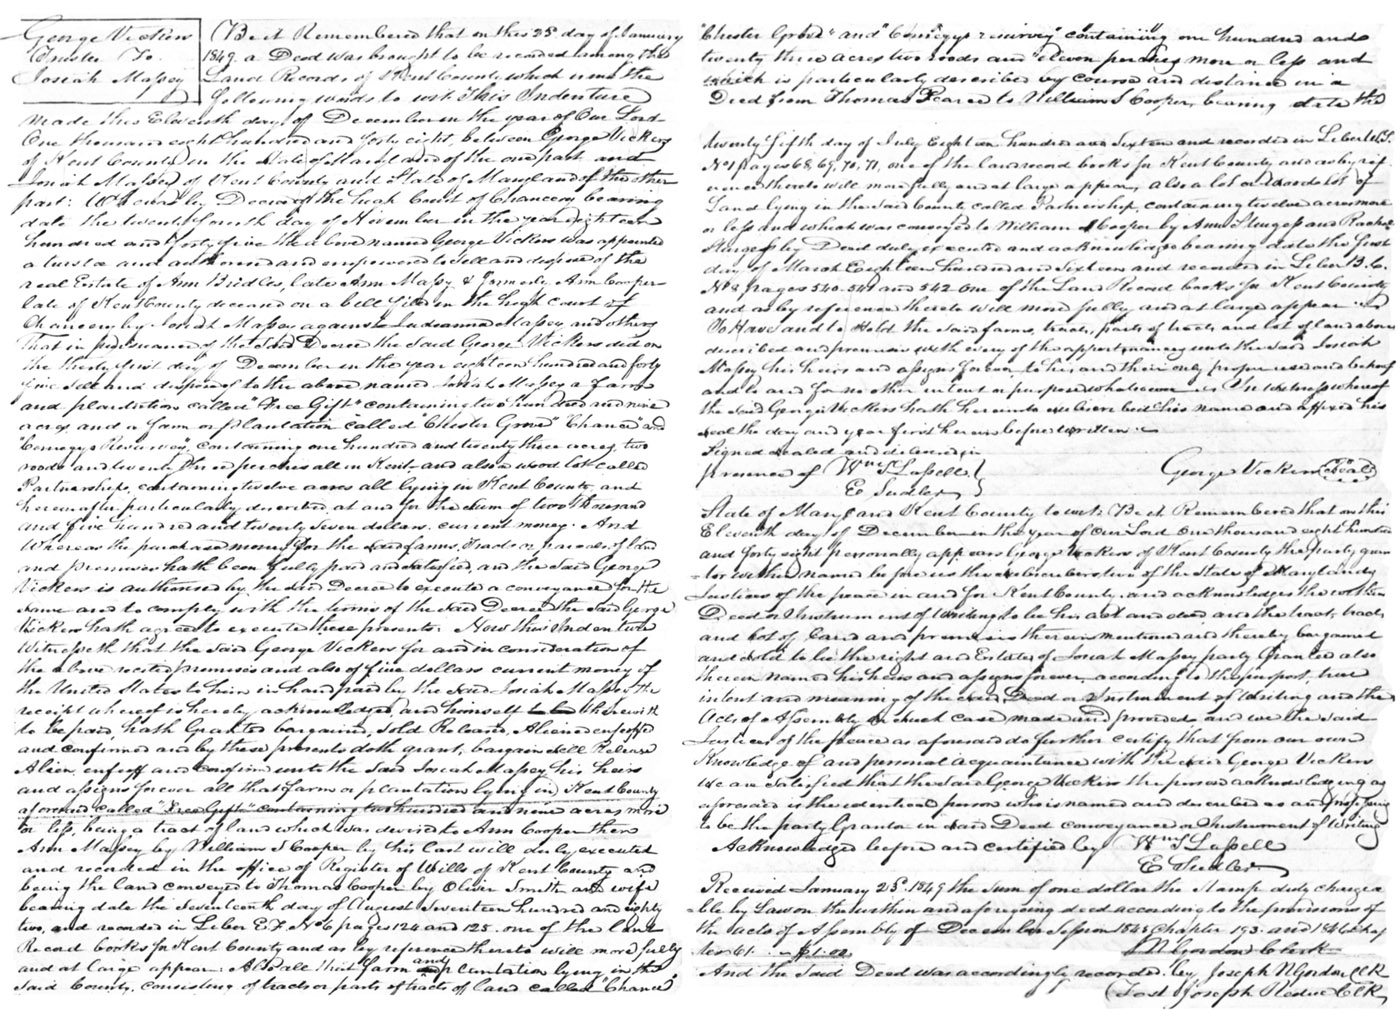 George Vickers
Trustee To
Josiah Massey
(Be it Remembered that on this 25th day of January
1849. a Deed was brought to be recorded among the
Land Records of Kent County which is in the
following words to wit: This Indenture
made this Eleventh day of December in the year of Our Lord
One thousand eight hundred and forty eight, between George Vickers
of Kent County in the State of Maryland of the one part and
Josiah Massey of Kent County and State of Maryland of the other
part: Whereas by Decree of the high Court of Chancery bearing
date the twenty fourth day of November in the year eighteen
hundred and forty five the above named George Vickers was appointed
a trustee and authorised and empowered to sell and dispose of the
real Estate of Ann Biddles, late Ann Massy & formerly Ann Cooper
late of Kent County deceased on a bill filed in the high court of
Chancery by Josiah Massey against Indianna Massey and others
that in pursuance of the said Decree the said George Vickers did on
the thirty first day of December in the year eighteen hundred and forty
five sell and dispose of to the above named Josiah Massey a farm
and plantation called "Free Gift" containing two hundred and nine
acres and a farm or plantation called Chester Grove "Chance" and
"Comegys Resurvey" containing one hundred and twenty three acres, two
roods and twenty three perches all in Kent and also a wood lot called
Partnership, containing twelve acres all lying in Kent County, and
hereinafter particularly described, at and for the sum of two thousand
and five hundred and twenty seven dollars, current money. And
Whereas the purchase money for the said farms, tracts or parcels of land
and premises hath been fully paid and satisfied, and the said George
Vickers is authorised by the said Decree to execute a conveyance for the
same and to comply with the terms of the said Decree the said George
Vickers hath agreed to execute these presents. Now this Indenture
Witnesseth that the said George Vickers for and in consideration of
the above recited premises and also of five dollars current money of
the United States to him in hand paid by the said Josiah Massey the
receipt whereof is hereby acknowledged, and himself therewith
to be paid, hath Granted bargained, sold Released, Aliened enfeoffed
and confirmed and by these presents doth grant, bargain sell Release
Alien, enfeoff and confirm unto the said Josiah Massey his heirs
and assigns forever all that farm or plantation lying in Kent County
aforesaid called "Free Gift" containing two hundred and nine acres more
or less, being a tract of land which was devised to Ann Cooper then
Ann Massey by William S Cooper by his last will duly executed
and recorded in the office of Register of Wills of Kent County and
being the land conveyed to Thomas Cooper by Oliver Smith and wife
bearing date the seventeenth day of August seventeen hundred and eighty
two, and recorded in Liber E.F. No 6 pages 124 and 125. one of the land
Record books for Kent County and as by reference thereto will more fully
and at large appear: Also all that farm and plantation lying in the
said County, consisting of tracts or parts of tracts of land called "Chance"
"Chester Grove" and "Comegys resurvey" containing one hundred and
twenty three acres two roods and eleven perches more or less and
which is particularly described by courses and distances in a
Deed from Thomas Pearce to William S Cooper, bearing date the
twenty fifth day of July Eighteen hundred and Sixteen and recorded in Liber W.S.
No 1 pages 68, 69, 70, 71, one of the land record books for Kent County and as by ref-
erence thereto will more fully and at large appear, also a lot or wood lot of
Land lying in the said County called Partnership, containing twelve acres more
or less and which was conveyed to William S Cooper by Ann Sturgess and Rachel
Sturgess by Deed duly executed and acknowledged bearing date the first
day of March Eighteen hundred and Sixteen and recorded in Liber B.C.
No 8 pages 540. 541 and 542 one of the Land Record books for Kent County
and as by reference thereto will more fully and at large appear
To Have and to Hold the said farms, tracts, parts of tracts and lot of land above
described and premises with every of the appurtenances unto the said Josiah
Massey his heirs and assigns forever to his and their only proper use and behoof
and to and for no other intent or purpose whatsoever. In Witness whereof
the said George Vickers hath hereunto subscribed his name and affixed his
seal the day and year first herein before written
Signed sealed and delivered in
presence of Wm S Lassell } George Vickers (Seal)
E. Sudler
State of Maryland Kent County to wit: Be it Remembered that on this
Eleventh day of December in the year of Our Lord One thousand eight hundred
and forty eight personally appears George Vickers of Kent County the party gran
tor within named before us the subscribers two of the State of Maryland's
Justices of the peace in and for Kent County, and acknowledges the within
Deed or Instrument of Writing to be his act and deed, and the tract, tracts
and lot of land and premises therein mentioned and thereby bargained
and sold to be the right and Estate of Josiah Massey party Grantee also
therein named his heirs and assigns forever, according to the purport, true
intent and meaning of the said Deed or Instrument of Writing and the
Acts of Assembly in such case made and provided and we the said
Justices of the peace as aforesaid do further certify that from our own
Knowledge of and personal acquaintance with the said George Vickers
we are satisfied that the said George Vickers the person acknowledging as
aforesaid is the identical person who is named and described as and professing
to be the party Grantor in said Deed conveyance or Instrument of Writing
Acknowledged before and certified by Wm S Lassell
E Sudler
Received January 25th 1849 the sum of one dollar the stamp duty chargea
ble by Law on the within and aforegoing deed according to the provisions of
the acts of Assembly of December Session 1845 Chapter 193. and 1846 Chap
ter 61. JNGordon Clerk
And the said Deed was accordingly recorded. by Joseph N Gordon Clk
(Test Joseph Redue Clk